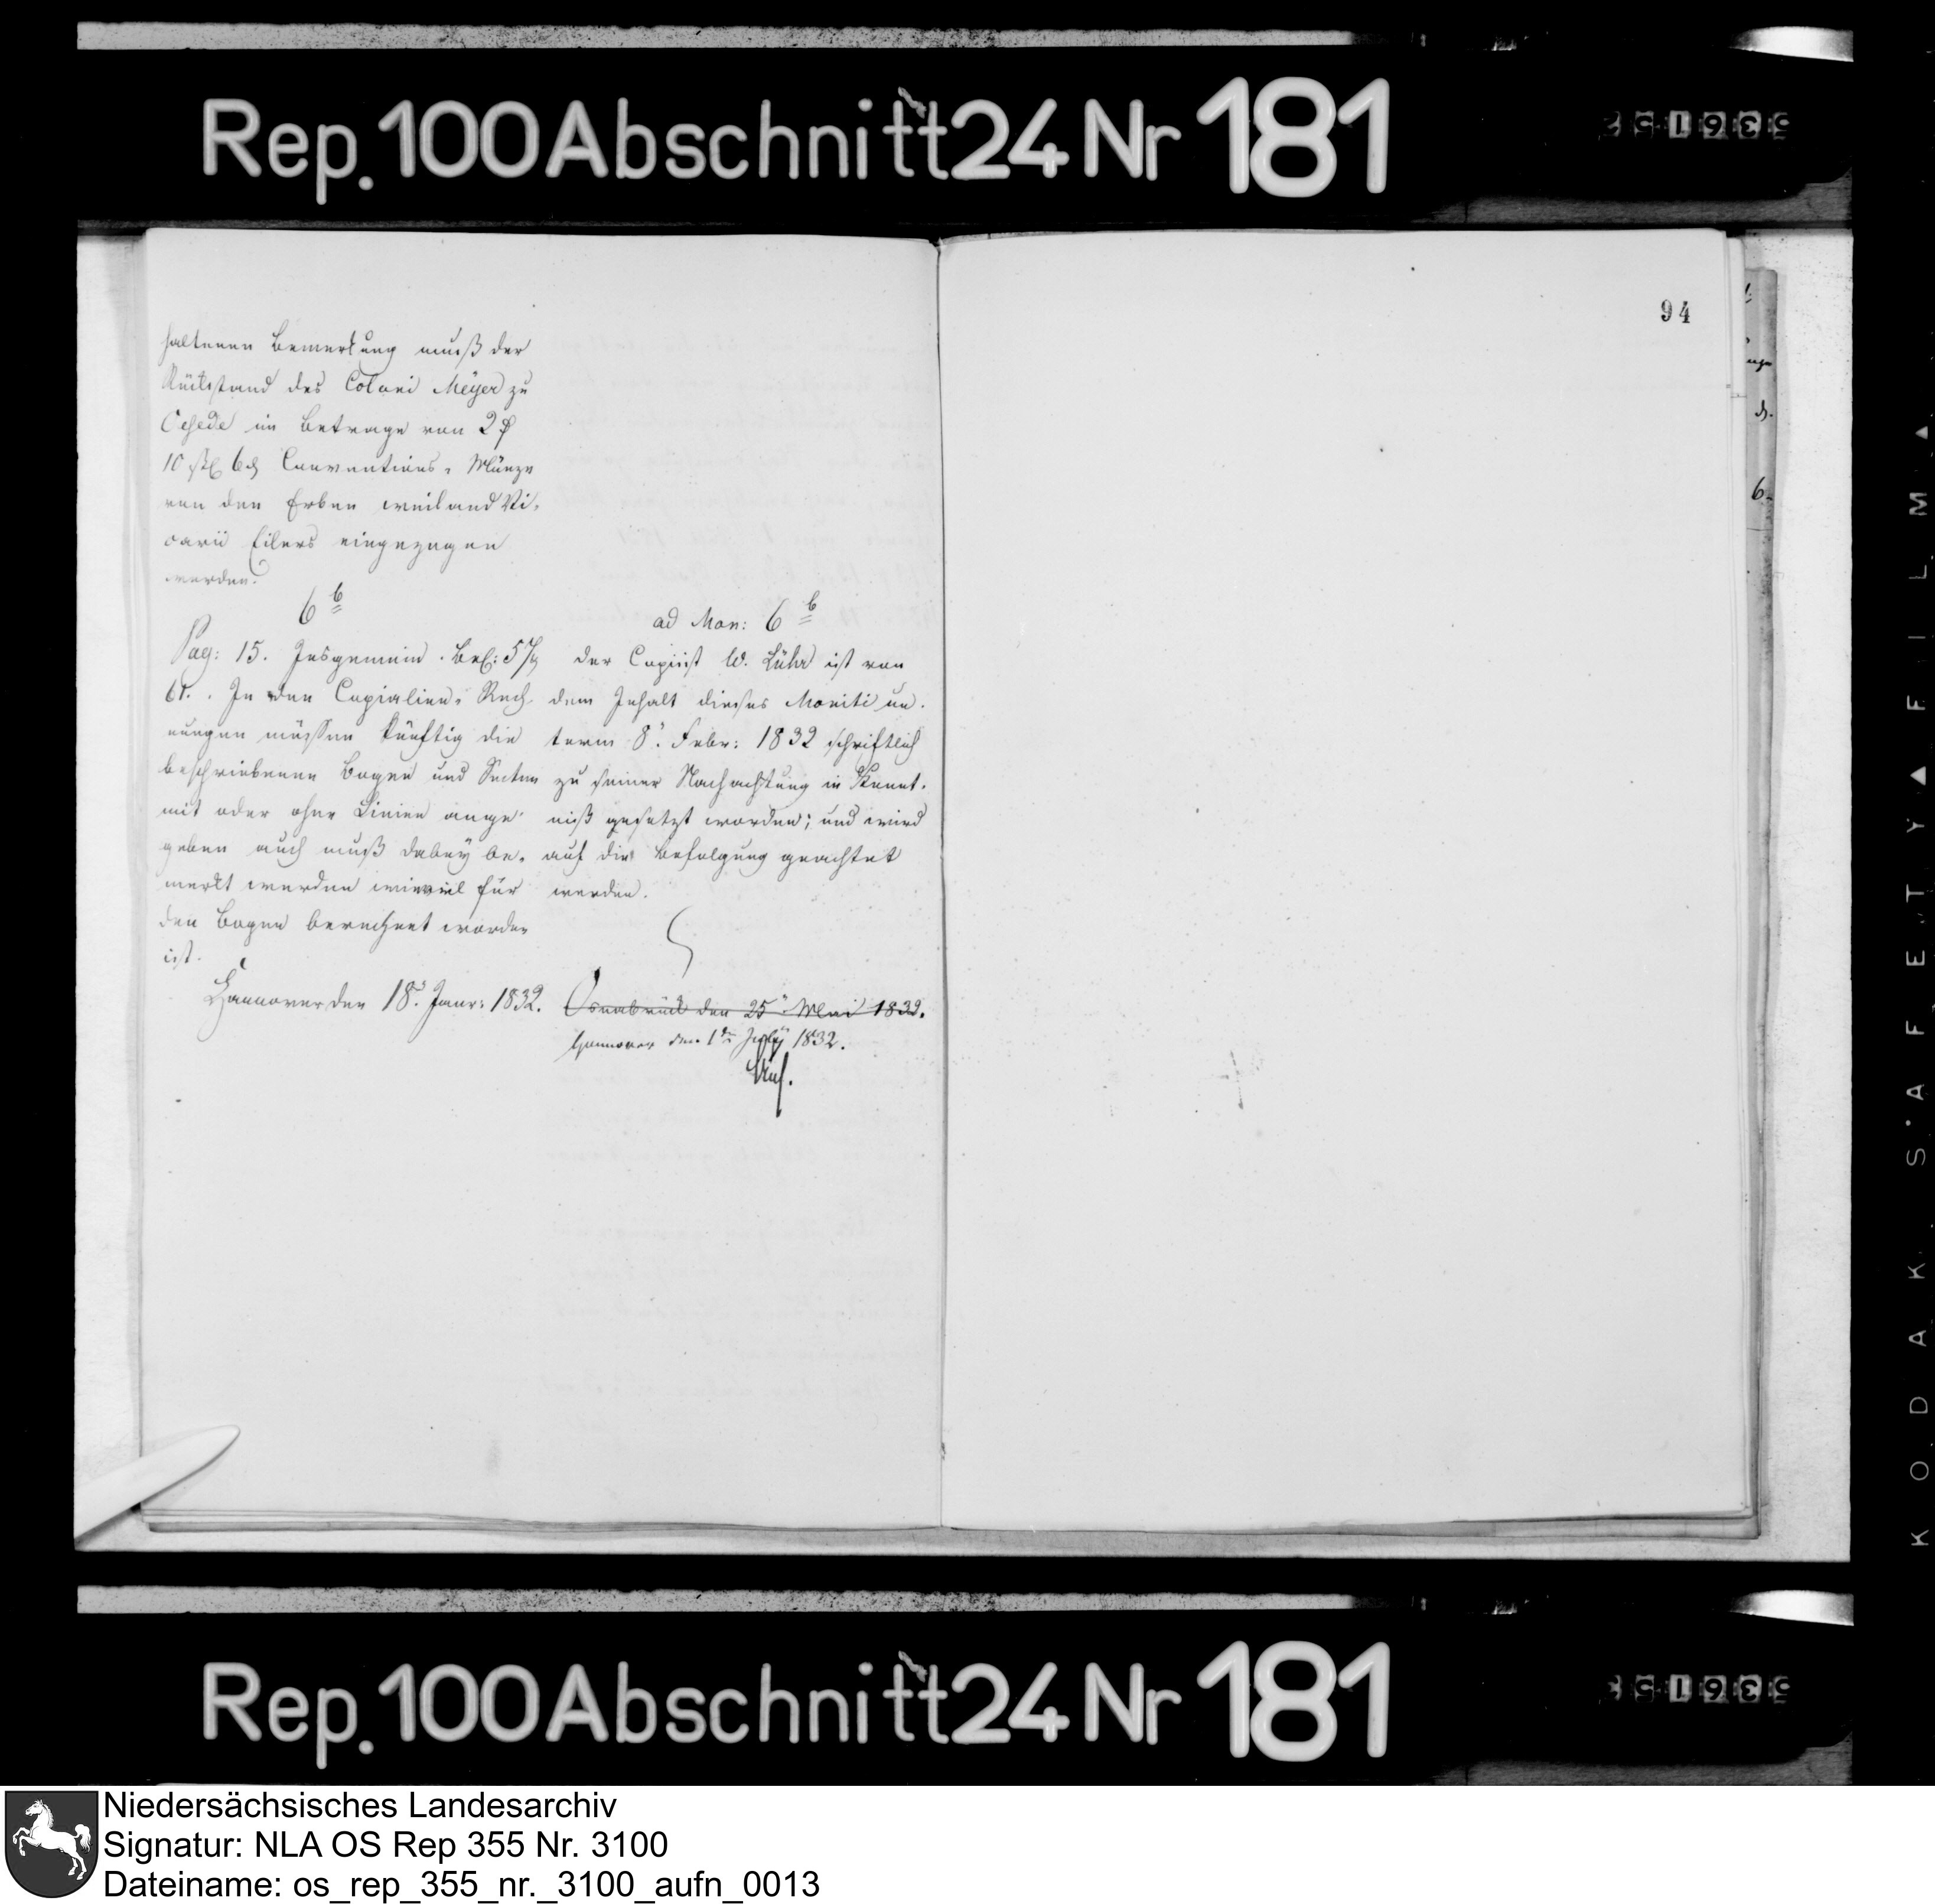 Rep. 100 Abschnitt 24 Nr 181
94
haltenen Bemerkung muß der
Rückstand des Coloni Meyer zu
Oesede im Betrage von 2
10 6 Conventions-Münze
von den Erben weiland Vi-
carii Eilers eingezogen
werden.
6 b
Pag: 15. Insgemein. Bel: 57/
61. In den Copialien-Rech-
nungen müssen künftig die
beschriebenen Bogen und Seiten
mit oder ohne Linien ange-
geben auch muß dabey be-
merkt werden wieviel für
den Bogen berechnet worden
ist.
Hannover den 18. Janr: 1832.
ad Mon: 6 b
der Copiist W. Lühr ist von
dem Inhalt dieses Moniti un-
term 8. Febr: 1832 schriftlich
zu seiner Nachachtung in Kennt-
niß gesetzt worden; und wird
auf die Befolgung geachtet
werden.
Osnabrück den 25. Mai 1832.
Hannover den 1 July 1832.
KODAK SAFETY FILM
Rep. 100 Abschnitt 24 Nr 181
Niedersächsisches Landesarchiv
Signatur: NLA OS Rep 355 Nr. 3100
Dateiname: os_rep_355_nr._3100_aufn_0013